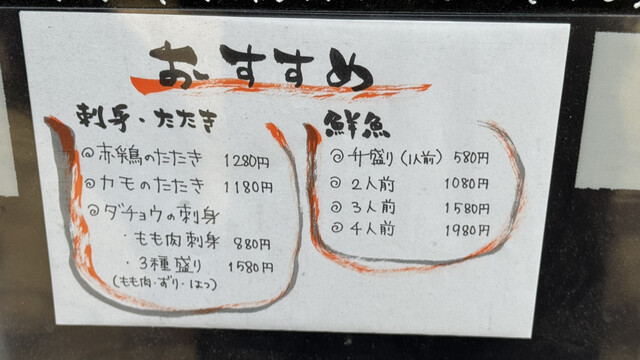 おすすめ
刺身・たたき
◎赤鶏のたたき 1280円
◎カモのたたき 1180円
◎ダチョウの刺身
・もも肉刺身 880円
・3種盛り 1580円
(もも肉・ずり・はつ)
鮮魚
◎升盛り(1人前) 580円
◎2人前 1080円
◎3人前 1580円
◎4人前 1980円